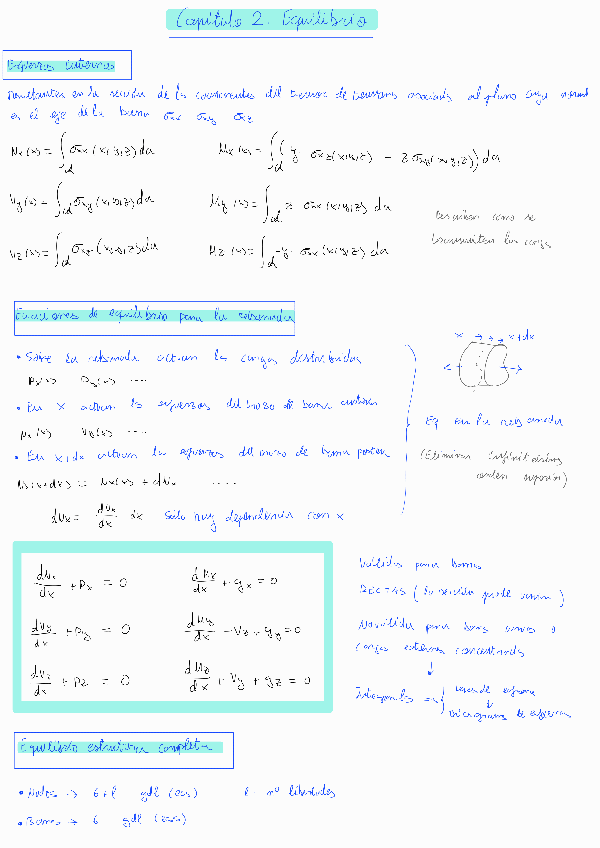 Capítulo 2. Equilibrio
Esfuerzos internos
Resultantes en la sección de las componentes del tensor de tensiones asociadas al plano cuya normal
es el eje de la barra σxx σxy σxz
Nx(x) = ∫α σxx(x,y,z) da
Mx(x) = ∫α (y σxz(x,y,z) - z σxy(x,y,z)) da
Vy(x) = ∫α σxy(x,y,z) da
My(x) = ∫α z σxx(x,y,z) da
Vz(x) = ∫α σxz(x,y,z) da
Mz(x) = ∫α -y σxx(x,y,z) da
como se
transmiten las cargas
Ecuaciones de equilibrio para la rebanada
• Sobre la rebanada actúan las cargas distribuidas
px(x) ....
• En x actúan los esfuerzos del trozo de barra anterior
Nx(x) Vy(x) ....
• En x+dx actúan los esfuerzos del trozo de barra posterior
Nx(x+dx) = Nx(x) + dNx ....
dNx = dNx/dx dx Sólo hay dependencia con x
x → → → x+dx
Eq en la rebanada
(Eliminar infinitésimos
orden superior)
dNx/dx + px = 0
dMx/dx + qx = 0
dVy/dx + py = 0
dMy/dx - Vz + qy = 0
dVz/dx + pz = 0
dMz/dx + Vy + qz = 0
Válidas para barras
rectas (la sección puede variar)
No válidas para barras curvas o
cargas externas concentradas
↓
Integrales ⇒ leyes de esfuerzos
↓
Diagramas de esfuerzos
Equilibrio estructura completa
• Nodos → 6+l gdl (ecs) l = nº libertades
• Barras → 6 gdl (ecs)